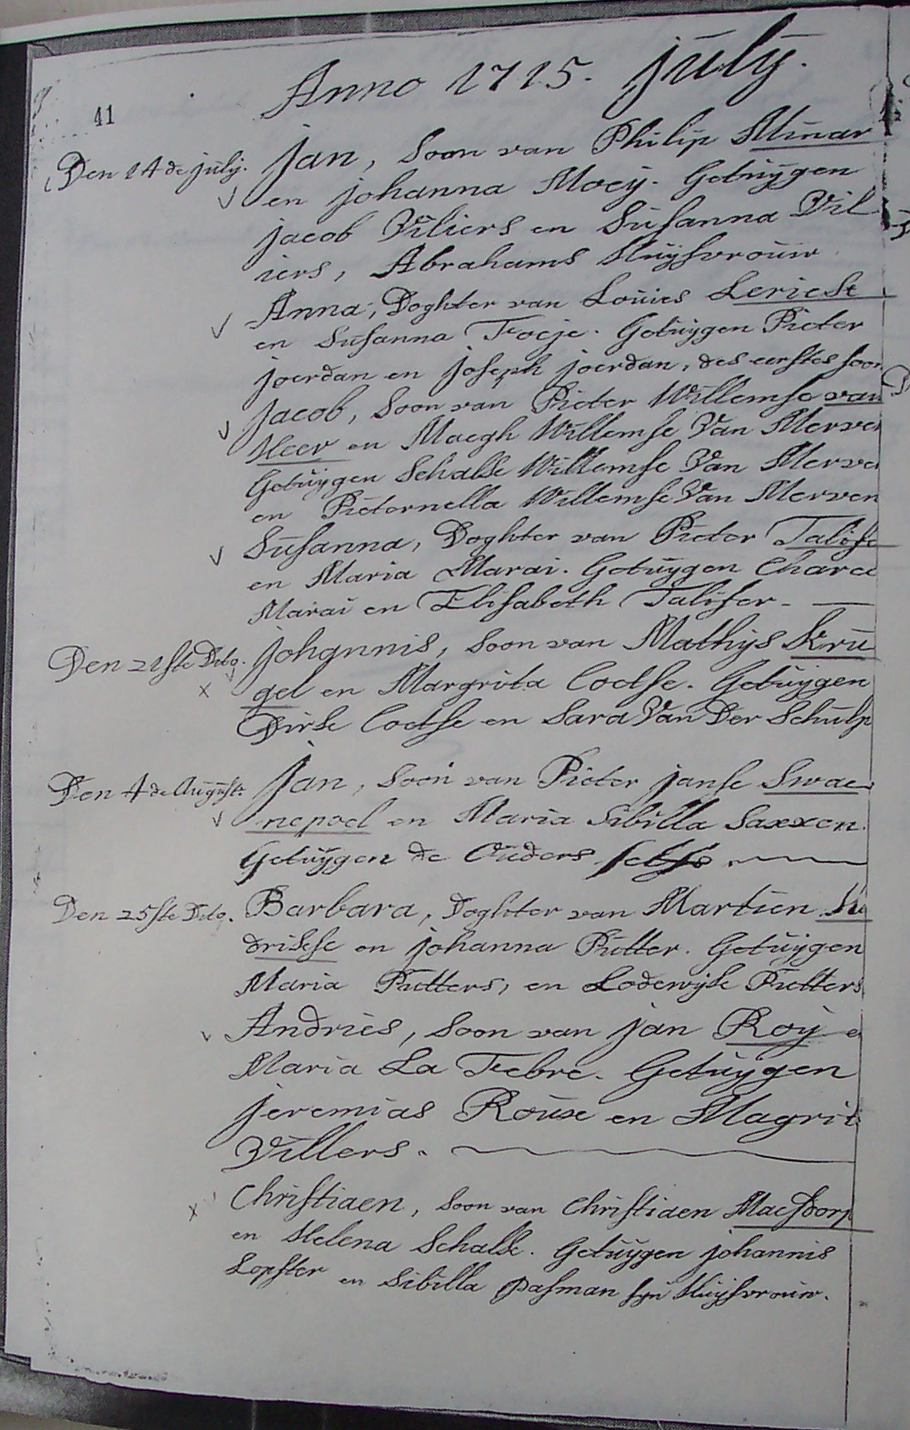 41
Anno 1715. july.
Den 14 de july. jan, Soon van Philip Minar
en johanna Moeij. Getuijgen
jacob Viliers en Susanna Vil
iers, Abrahams Huijsvrouw
Anna, Doghter van Louies Leriesk
en Susanna Foeje. Getuijgen Pieter
joerdan en joseph joerdan, des eerstes soon
jacob, Soon van Pieter Willemse van
Heer en Maegh Willemse Van Merven
Getuijgen Schalk Willemse Van Merven
en Pieternella Willemse Van Merven
Susanna, Doghter van Pieter Talife
en Maria Marai. Getuijgen Charel
Marai en Elisabeth Talifer.
Den 21ste Dito. johannis, Soon van Mathys Kru
gel en Margrita Coetse. Getuijgen
Dirk Coetse en Sara Van Der Schulp
Den 4 de August. jan, Soon van Pieter janse Swae
nepoel en Maria Sibilla Saxxen.
Getuijgen de Ouders selfs
Den 25ste Dito. Barbara, Doghter van Martien
drikse en johanna Putter. Getuijgen
Maria Putters, en Lodewijk Putters
Andries, Soon van jan Roij e
Maria La Febre. Getuijgen
jeremias Roux en Magrit
Villers.
Christiaen, Soon van Christiaen Maesdorp
en Helena Schalk. Getuijgen johannis
Lopster en Sibilla Pasman syn Huijsvrouw.